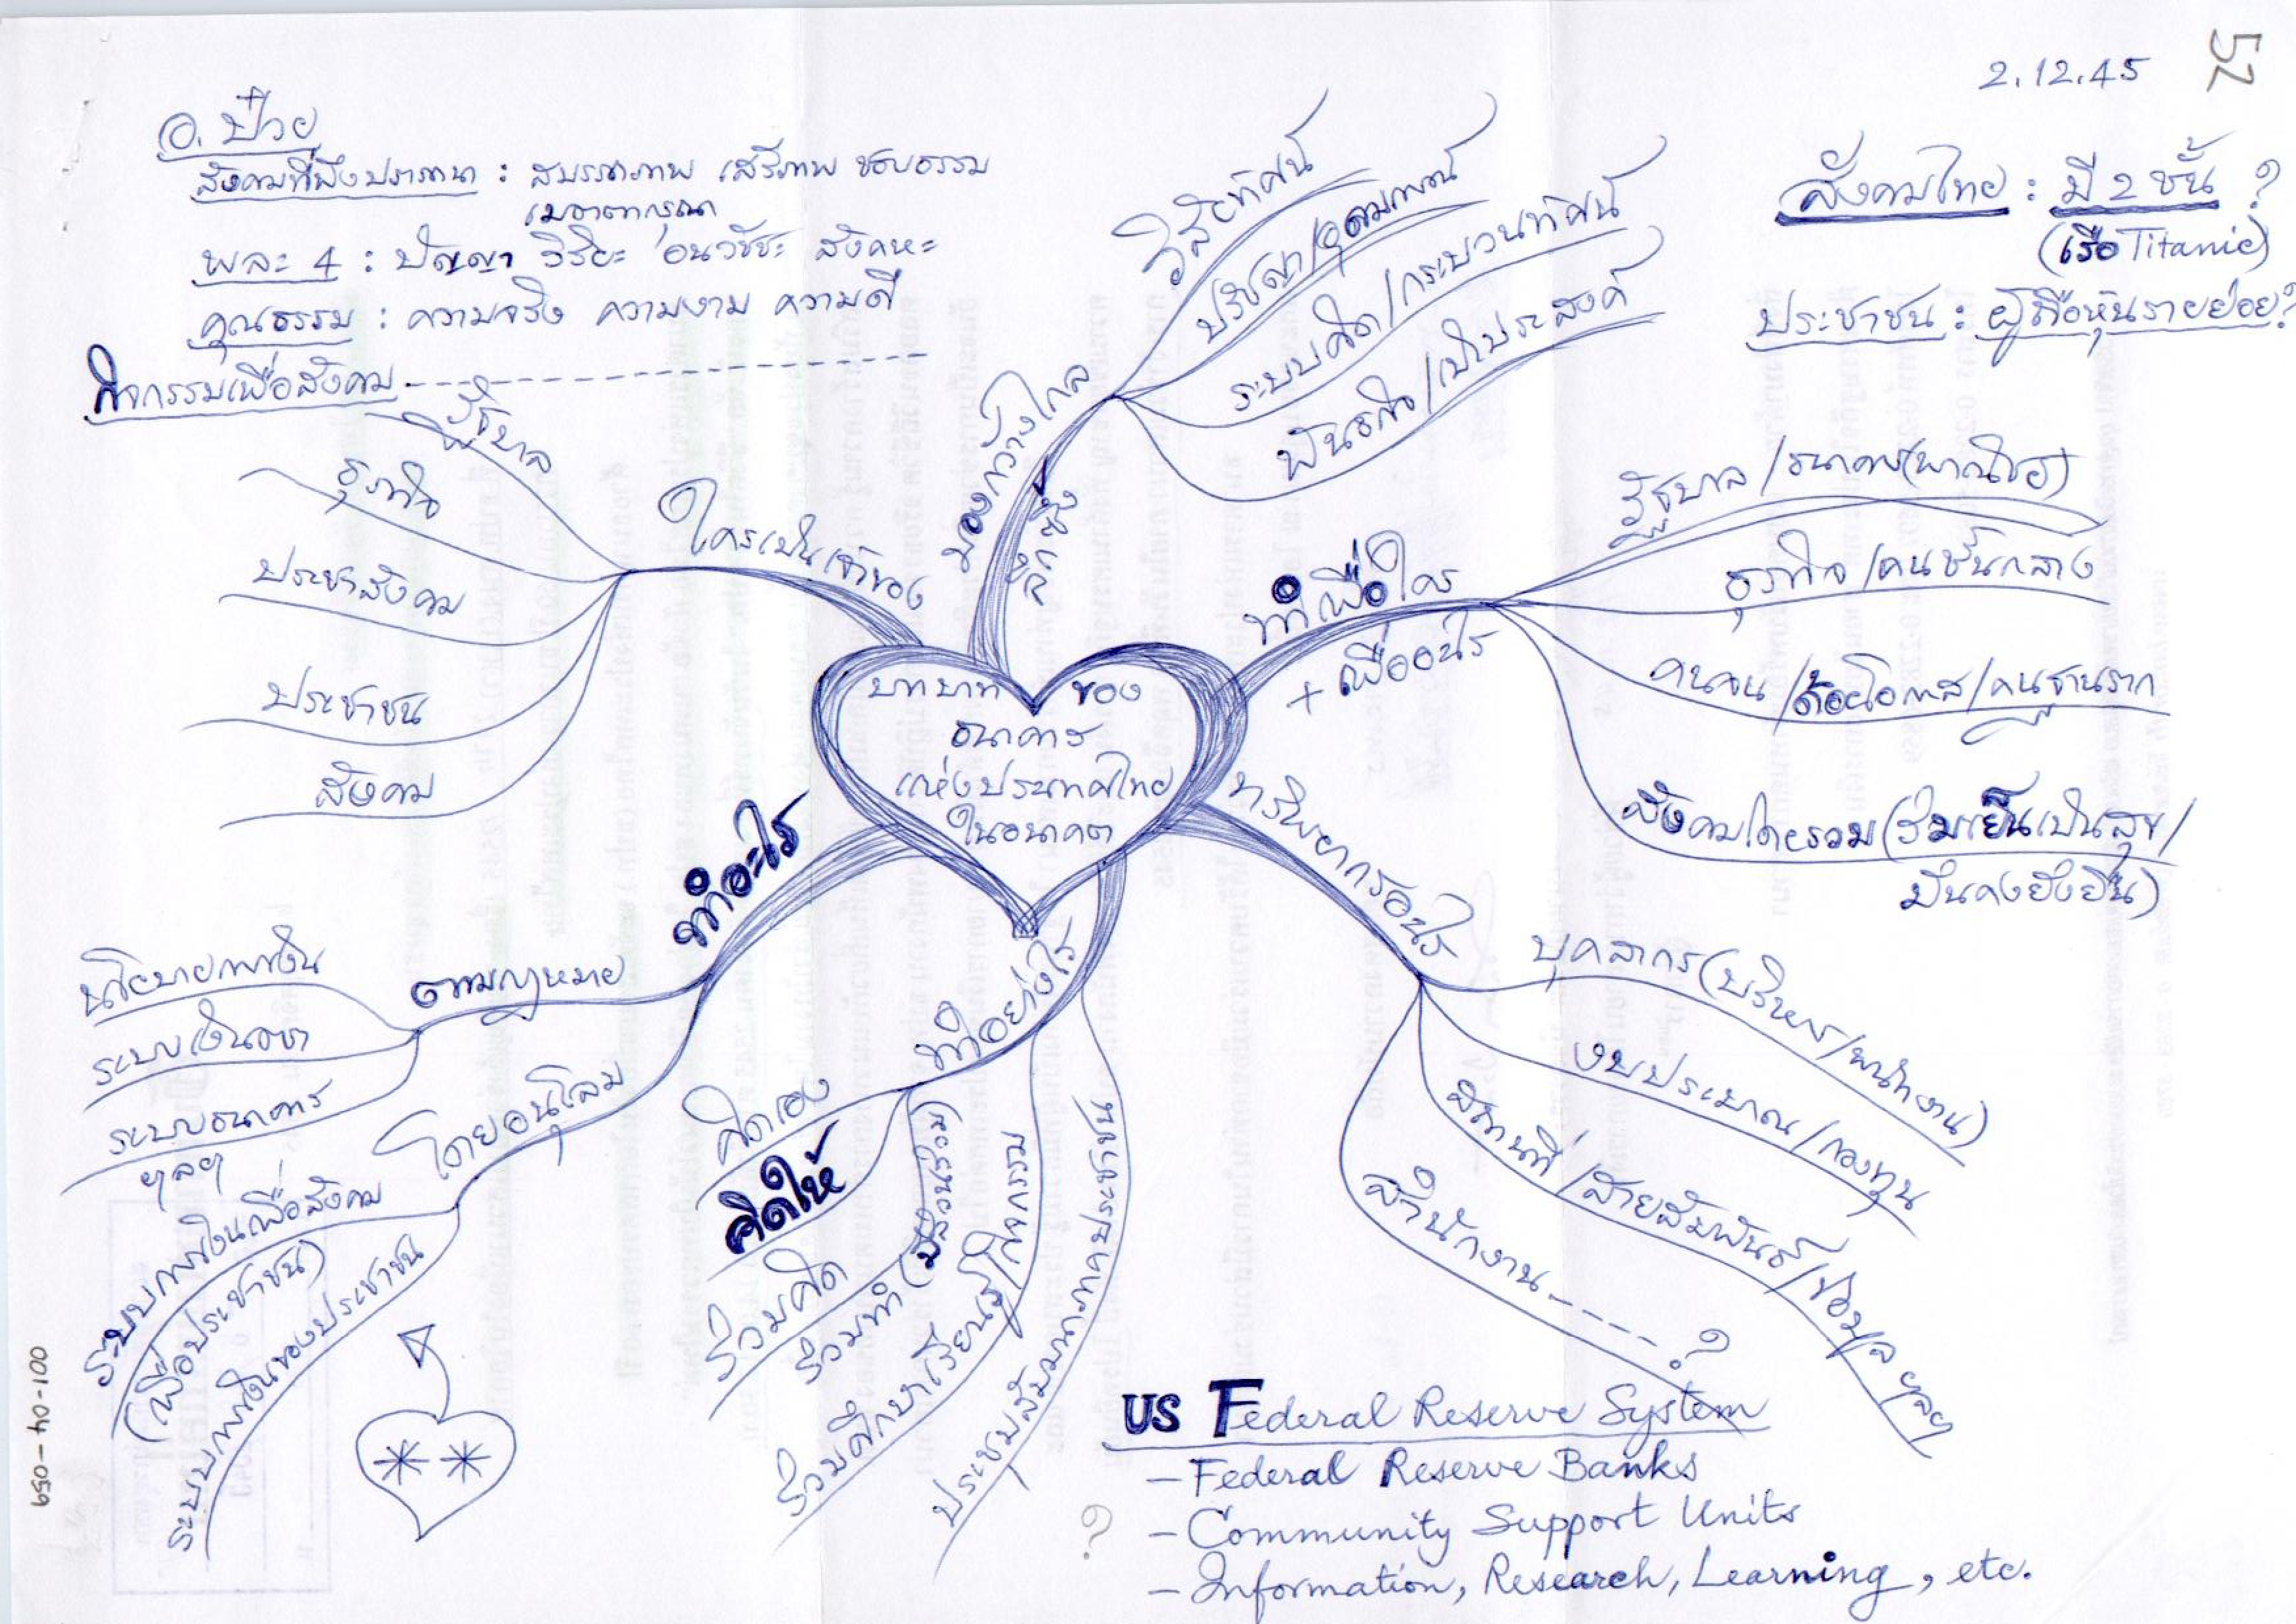 52
2.12.45
อ. ป๋วย
สังคมที่พึงปรารถนา : สมรรถภาพ เสรีภาพ ชอบธรรม
เมตตากรุณา
พละ 4 : ปัญญา วิริยะ อนวัชชะ สังคหะ
คุณธรรม : ความจริง ความงาม ความดี
กิจกรรมเพื่อสังคม
สังคมไทย : มี 2 ชั้น ?
(เรือ Titanic)
ประชาชน : ผู้ถือหุ้นรายย่อย?
บทบาท ของ
ธนาคาร
แห่งประเทศไทย
ในอนาคต
มองกว้างไกล
ลึกซึ้ง
วิสัยทัศน์
ปรัชญา/อุดมการณ์
ระบบคิด/กระบวนทัศน์
พันธกิจ/เป้าประสงค์
ทำเพื่อใคร
+ เพื่ออะไร
รัฐบาล/ธนาคาร(พาณิชย์)
ธุรกิจ/คนชั้นกลาง
คนจน/ด้อยโอกาส/คนฐานราก
สังคมโดยรวม(ร่มเย็นเป็นสุข/
มั่นคงยั่งยืน)
ทรัพยากรอะไร
บุคลากร(บริหาร/พนักงาน)
งบประมาณ/กองทุน
สถานที่/สายสัมพันธ์/ข้อมูล ฯลฯ
สำนักงาน ---- ?
ทำอย่างไร
คิดเอง
คิดให้
ร่วมคิด
ร่วมทำ
ร่วมศึกษา/เรียนรู้/กิจกรรม
ประชุมสัมมนาภาคประชาชน
ทำอะไร
ตามกฎหมาย
นโยบายการเงิน
ระบบเงินตรา
ระบบธนาคาร
ฯลฯ
โดยอนุโลม
ระบบการเงินเพื่อสังคม
(เพื่อประชาชน)
ระบบการเงินของประชาชน
ใครเป็นเจ้าของ
รัฐบาล
ธุรกิจ
ประชาสังคม
ประชาชน
สังคม
US Federal Reserve System
– Federal Reserve Banks
– Community Support Units
– Information, Research, Learning, etc.
?
001-04-059